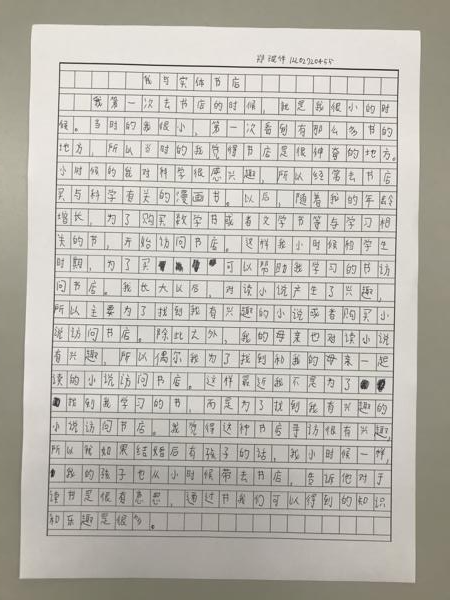 1402720455
我与实体书店
我第一次去书店的时候，就是我很小的时
候。当时的我很小，第一次看到有那么多书的
地方，所以当时的我觉得书店是很神奇的地方。
小时候的我对科学很感兴趣，所以经常去书店
买与科学有关的漫画书。以后，随着我的年龄
增长，为了购买数学书或者文学书等与学习相
关的书，开始访问书店。这样我小时候和学生
时期，为了买可以帮助我学习的书访
问书店。我长大以后，对读小说产生了兴趣，
所以主要为了找到我有兴趣的小说或者购买小
说访问书店。除此之外，我的母亲也对读小说
有兴趣，所以偶尔我为了找到和我的母亲一起
读的小说访问书店。这样最近我不是为了
找到我学习的书，而是为了找到我有兴趣的
小说访问书店。我觉得这种书店寻访很有兴趣，
所以我如果结婚后有孩子的话，我小时候一样，
我的孩子也从小时候带去书店，告诉他对于
读书是很有意思，通过书我们可以得到的知识
和乐趣是很多。